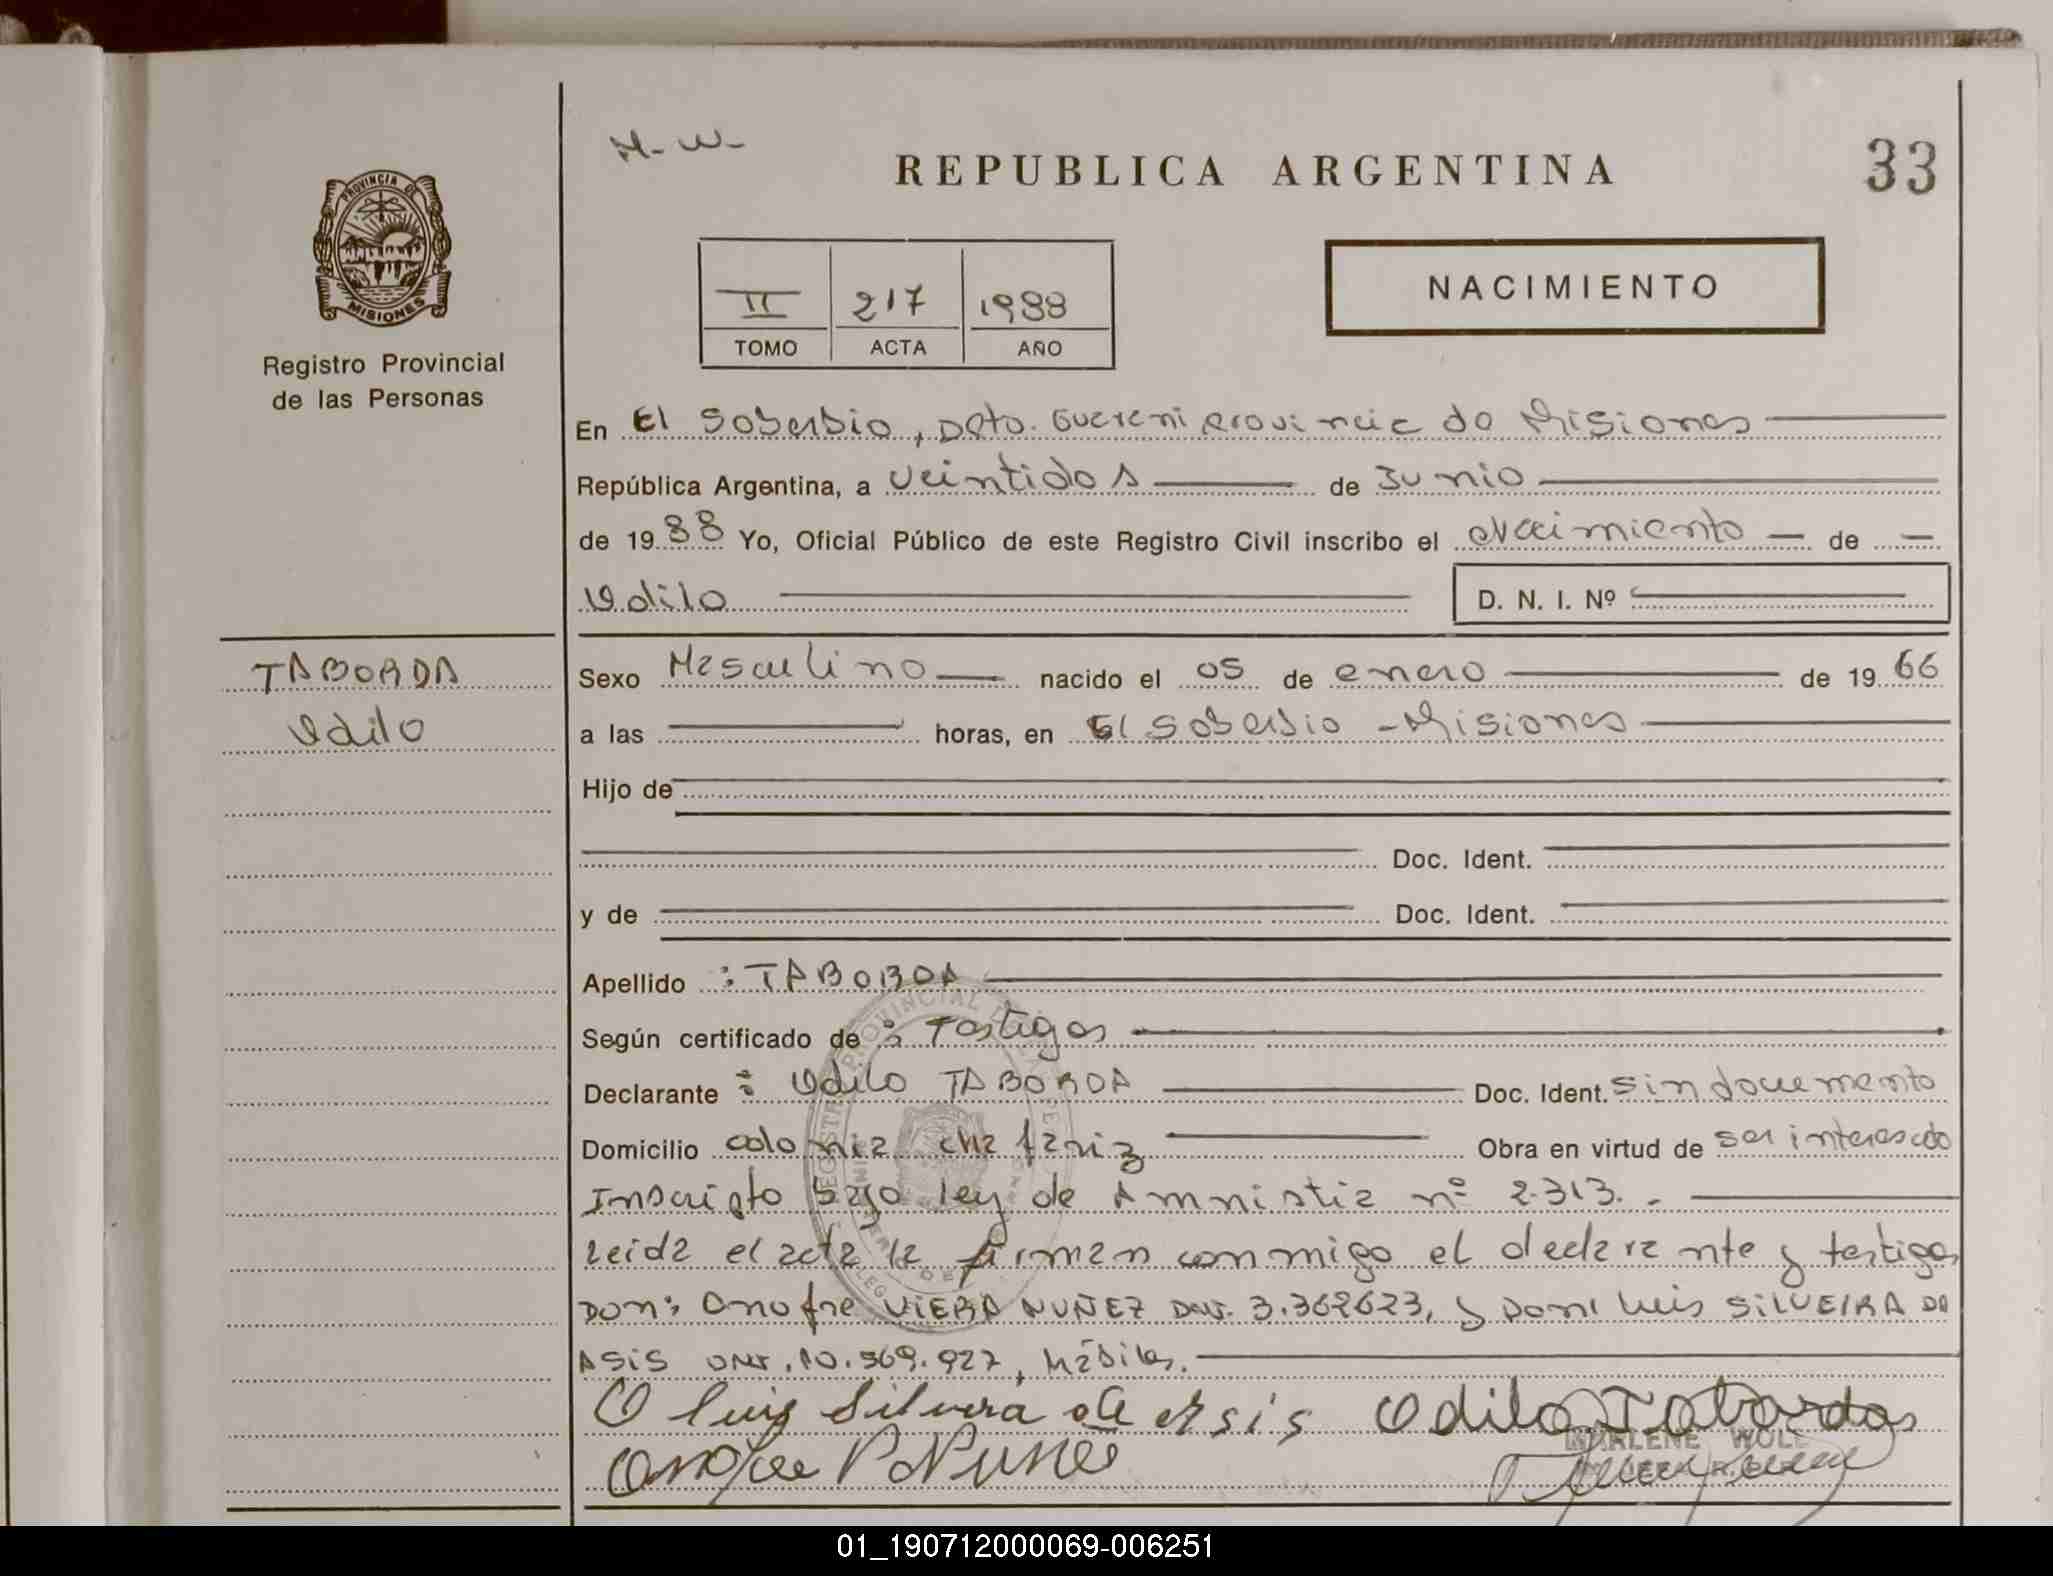 M-W-
REPUBLICA ARGENTINA
33
PROVINCIA DE MISIONES
Registro Provincial
de las Personas
II 217 1988
TOMO ACTA AÑO
NACIMIENTO
En El Soberbio, Dpto. Guarani Provincia de Misiones
República Argentina, a veintidos de Junio
de 1988 Yo, Oficial Público de este Registro Civil inscribo el Nacimiento de
Odilo D. N. I. Nº
TABORDA
Odilo
Sexo Masculino nacido el 05 de enero de 1966
a las horas, en El Soberbio - Misiones
Hijo de
Doc. Ident.
y de Doc. Ident.
Apellido : TABORDA
Según certificado de : Testigos
Declarante : Odilo TABORDA Doc. Ident. sin documento
Domicilio colonia cha fariz Obra en virtud de ser interesado
Inscripto bajo ley de Amnistia nº 2.313. -
Leida el acta la firman conmigo el declarante y testigos
Don: Onofre VIERA NUÑEZ DNI. 3.362623, y Don: Luis SILVEIRA DE
ASIS DNI. 10.569.927, Hábiles.
Luis Silvera de Asis Odilo Taborda
MARLENE
01_190712000069-006251